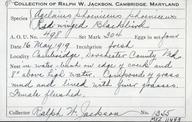 COLLECTION OF RALPH W. JACKSON, CAMBRIDGE, MARYLAND
Species Agelaius phoeniceus phoeniceus
Red-winged Blackbird
A.O.U. 498 Set mark 304 Eggs in set four
Date 16 May 1919 Incubation fresh
Locality Cambridge, Dorchester County, Md.
Nest in water, weeds on edge of creek and
1" above high water. Composed of grass
and lined with finer grasses.
Female flushed.
Collector Ralph W. Jackson No. 1355